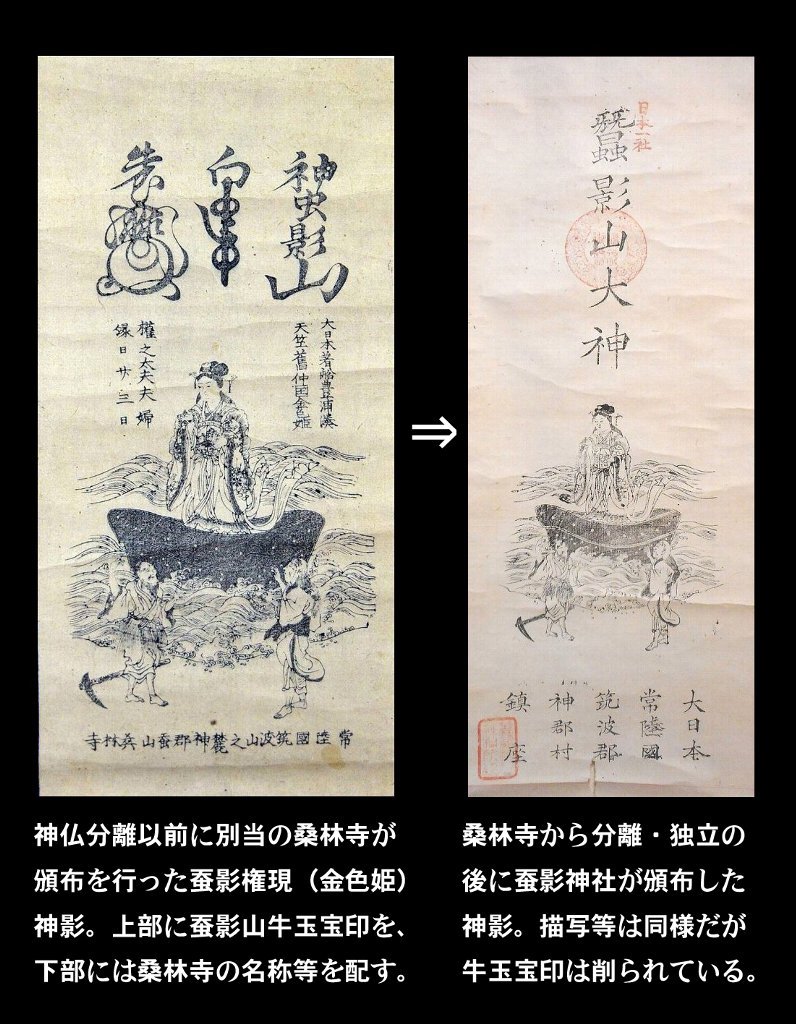 神虫影山
大日本著舩豊浦湊
天竺舊仲国金色姫
權之太夫夫婦
縁日廿三日
常陸國筑波山之麓神郡蚕山桒林寺
⇒
日本一社
蠶影山大神
大日本
常陸國
筑波郡
神郡村
鎮座
神仏分離以前に別当の桑林寺が
頒布を行った蚕影権現（金色姫）
神影。上部に蚕影山牛玉宝印を、
下部には桑林寺の名称等を配す。
桑林寺から分離・独立の
後に蚕影神社が頒布した
神影。描写等は同様だが
牛玉宝印は削られている。